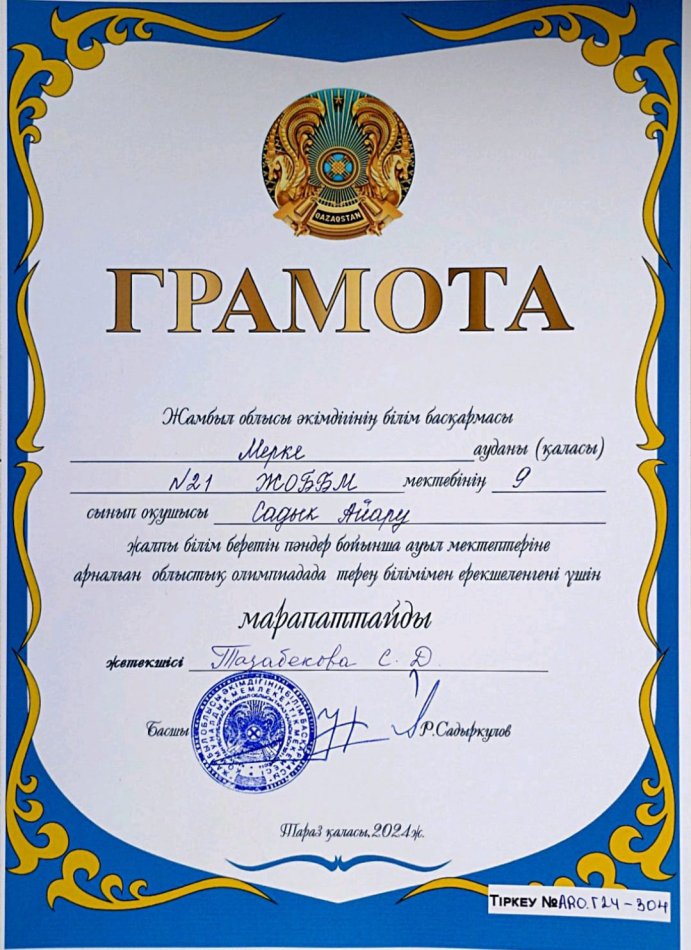 QAZAQSTAN
ГРАМОТА
Жамбыл облысы әкімдігінің білім басқармасы
Мерке ауданы (қаласы)
№21 ЖОББМ мектебінің 9
сынып оқушысы Садық Айару
жалпы білім беретін пәндер бойынша ауыл мектептеріне
арналған облыстық олимпиадада терең білімімен ерекшеленгені үшін
марапаттайды
жетекшісі Тазабекова С. Д.
Басшы Р.Садыркулов
Тараз қаласы, 2024ж.
ТІРКЕУ №ARO.Г24-304